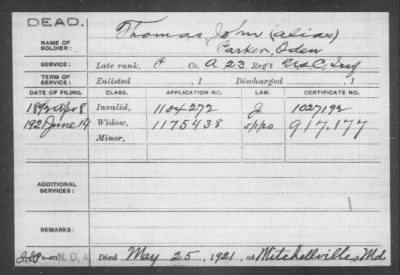 DEAD.
NAME OF SOLDIER: Thomas, John (alias)
Parker, Oden
SERVICE: Late rank, P Co. A 23 Reg't U.S.C. Inf
TERM OF SERVICE: Enlisted , 1 Discharged , 1
DATE OF FILING. CLASS. APPLICATION NO. LAW. CERTIFICATE NO.
1892 Apr 8 Invalid, 1104272 J 1027192
1921 June 14 Widow, 1175438 5/1/20 917,177
Minor,
ADDITIONAL SERVICES:
REMARKS:
N.D.A Died May 25, 1921, at Mitchellville, Md